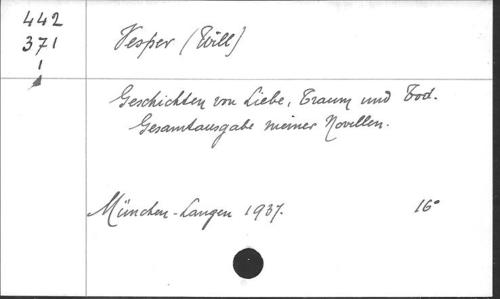 442
371
1
Vesper (Will)
Geschichten von Liebe, Traum und Tod.
Gesamtausgabe meiner Novellen.
München-Langen 1937. 16°